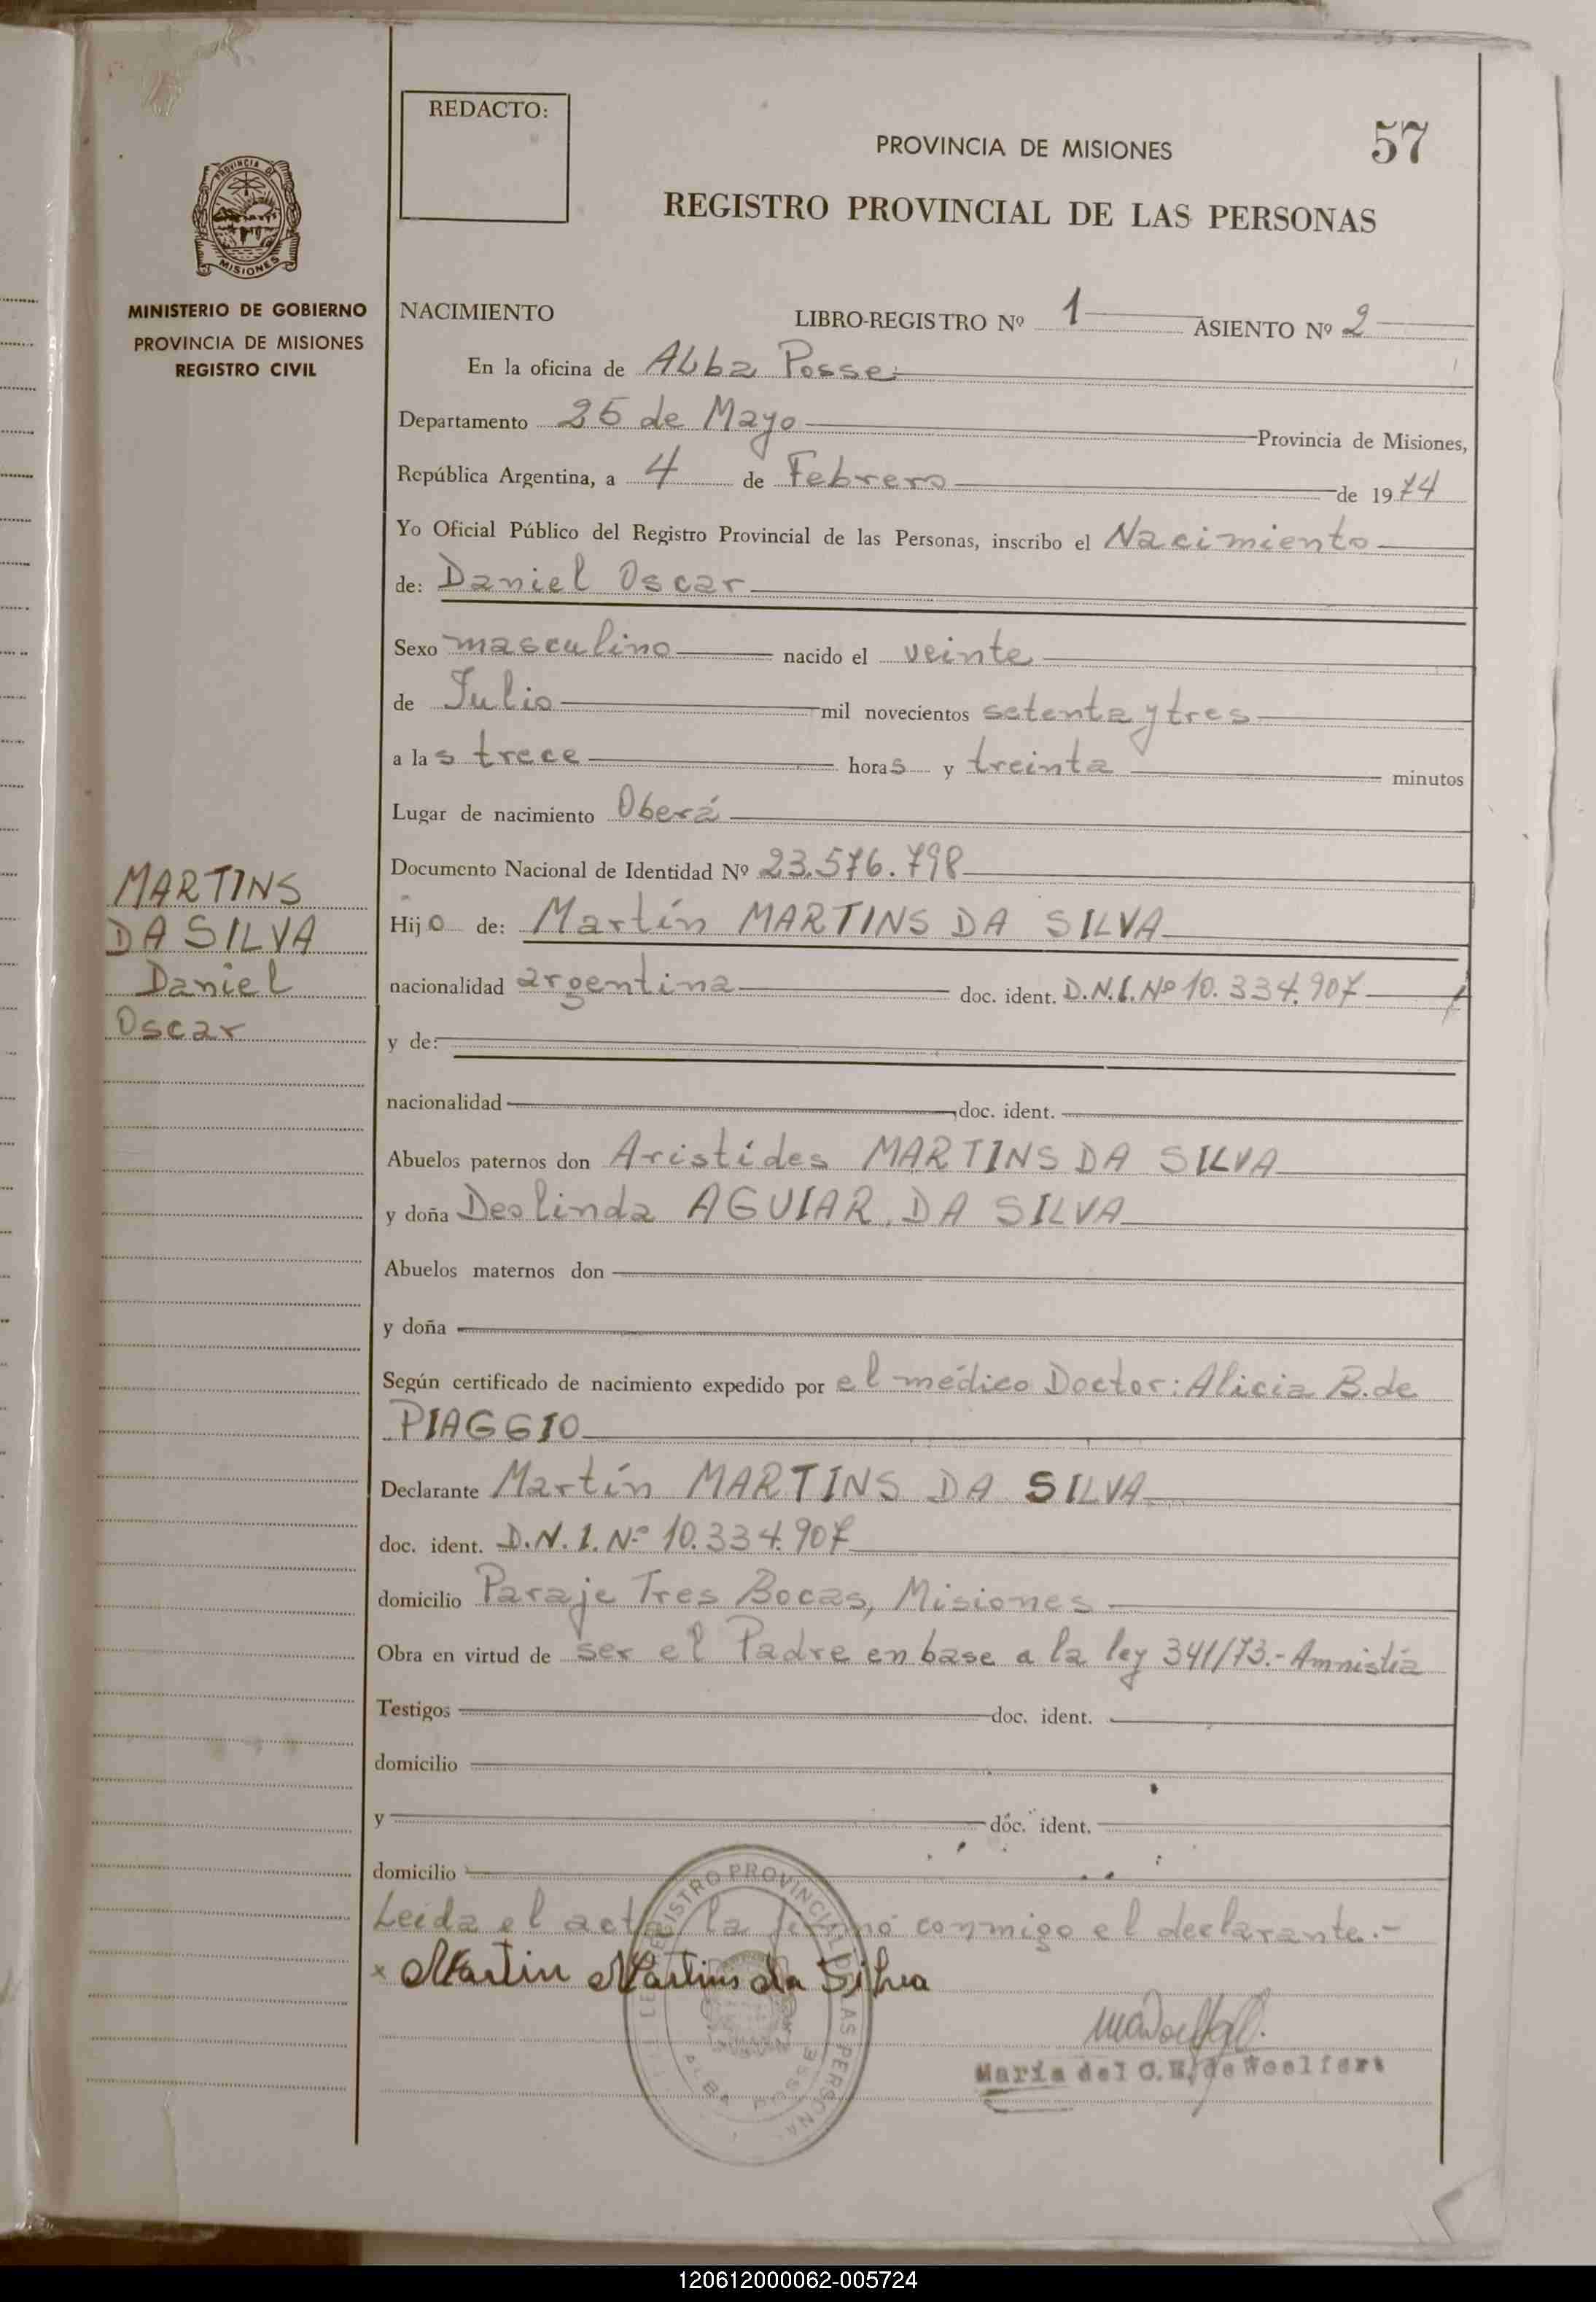 REDACTO:
PROVINCIA DE MISIONES
57
REGISTRO PROVINCIAL DE LAS PERSONAS
PROVINCIA DE
MISIONES
MINISTERIO DE GOBIERNO
PROVINCIA DE MISIONES
REGISTRO CIVIL
NACIMIENTO LIBRO-REGISTRO Nº 1 ASIENTO Nº 2
En la oficina de Alba Posse
Departamento 25 de Mayo Provincia de Misiones,
República Argentina, a 4 de Febrero de 1974
Yo Oficial Público del Registro Provincial de las Personas, inscribo el Nacimiento
de: Daniel Oscar
Sexo masculino nacido el veinte
de Julio mil novecientos setenta y tres
a las trece horas y treinta minutos
Lugar de nacimiento Oberá
Documento Nacional de Identidad Nº 23.576.798
MARTINS
DA SILVA
Daniel
Oscar
Hijo de: Martín MARTINS DA SILVA
nacionalidad argentina doc. ident. D.N.I. Nº 10.334.907
y de:
nacionalidad doc. ident.
Abuelos paternos don Aristídes MARTINS DA SILVA
y doña Deolinda AGUIAR DA SILVA
Abuelos maternos don
y doña
Según certificado de nacimiento expedido por el médico Doctor: Alicia B. de
PIAGGIO
Declarante Martín MARTINS DA SILVA
doc. ident. D.N.I. Nº 10.334.907
domicilio Paraje Tres Bocas, Misiones
Obra en virtud de ser el Padre en base a la ley 341/73.- Amnistía
Testigos doc. ident.
domicilio
y doc. ident.
domicilio
Leída el acta, la firmó conmigo el declarante.-
x Martin Martins da Silva
REGISTRO PROVINCIAL DE LAS PERSONAS
ALBA POSSE
Maria del C. de Woelfert
120612000062-005724